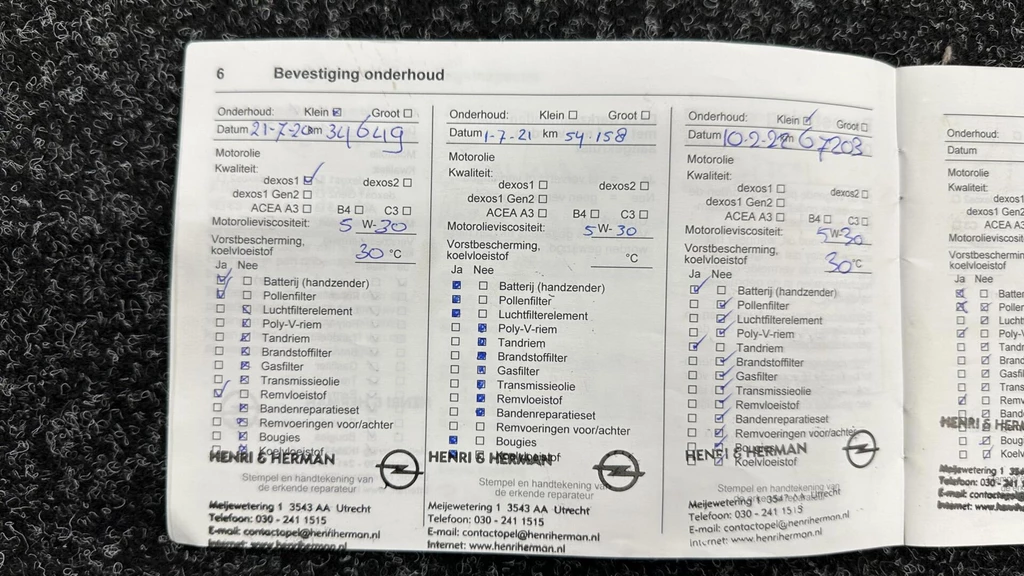 6 Bevestiging onderhoud
Onderhoud: Klein ☒ Groot ☐
Datum 21-7-20 km 34649
Motorolie
Kwaliteit:
dexos1 ☑ dexos2 ☐
dexos1 Gen2 ☐
ACEA A3 ☐ B4 ☐ C3 ☐
Motorolieviscositeit: 5 W- 30
Vorstbescherming,
koelvloeistof 30 °C
Ja Nee
Batterij (handzender)
Pollenfilter
Luchtfilterelement
Poly-V-riem
Tandriem
Brandstoffilter
Gasfilter
Transmissieolie
Remvloeistof
Bandenreparatieset
Remvoeringen voor/achter
Bougies
Koelvloeistof
HENRI & HERMAN
Stempel en handtekening van
de erkende reparateur
Meijewetering 1 3543 AA Utrecht
Telefoon: 030 - 241 1515
E-mail: contactopel@henriherman.nl
Internet: www.henriherman.nl
Onderhoud: Klein ☐ Groot ☐
Datum 1-7-21 km 54-158
Motorolie
Kwaliteit:
dexos1 ☐ dexos2 ☐
dexos1 Gen2 ☐
ACEA A3 ☐ B4 ☐ C3 ☐
Motorolieviscositeit: 5 W- 30
Vorstbescherming,
koelvloeistof °C
Ja Nee
Batterij (handzender)
Pollenfilter
Luchtfilterelement
Poly-V-riem
Tandriem
Brandstoffilter
Gasfilter
Transmissieolie
Remvloeistof
Bandenreparatieset
Remvoeringen voor/achter
Bougies
Koelvloeistof
HENRI & HERMAN
Stempel en handtekening van
de erkende reparateur
Meijewetering 1 3543 AA Utrecht
Telefoon: 030 - 241 1515
E-mail: contactopel@henriherman.nl
Internet: www.henriherman.nl
Onderhoud: Klein ☑ Groot ☐
Datum 10-2-22 km 67203
Motorolie
Kwaliteit:
dexos1 ☐ dexos2 ☐
dexos1 Gen2 ☐
ACEA A3 ☐ B4 ☐ C3 ☐
Motorolieviscositeit: 5W-30
Vorstbescherming,
koelvloeistof 30 °C
Ja Nee
Batterij (handzender)
Pollenfilter
Luchtfilterelement
Poly-V-riem
Tandriem
Brandstoffilter
Gasfilter
Transmissieolie
Remvloeistof
Bandenreparatieset
Remvoeringen voor/achter
Bougies
Koelvloeistof
HENRI & HERMAN
Stempel en handtekening van
de erkende reparateur
Meijewetering 1 3543 AA Utrecht
Telefoon: 030 - 241 1515
E-mail: contactopel@henriherman.nl
Internet: www.henriherman.nl
Onderhoud:
Datum
Motorolie
Kwaliteit:
dexos1
dexos1 Gen2
ACEA A3
Motorolieviscosit
Vorstbescherming
koelvloeistof
Ja Nee
Batter
Poller
Lucht
Poly-
Tandr
Brand
Gasfi
Trans
Remv
Band
HENRI & HERM
Boug
Koelv
Meijewetering 1 354
Telefoon: 030 - 241
E-mail: contactopel
Internet: www.hen